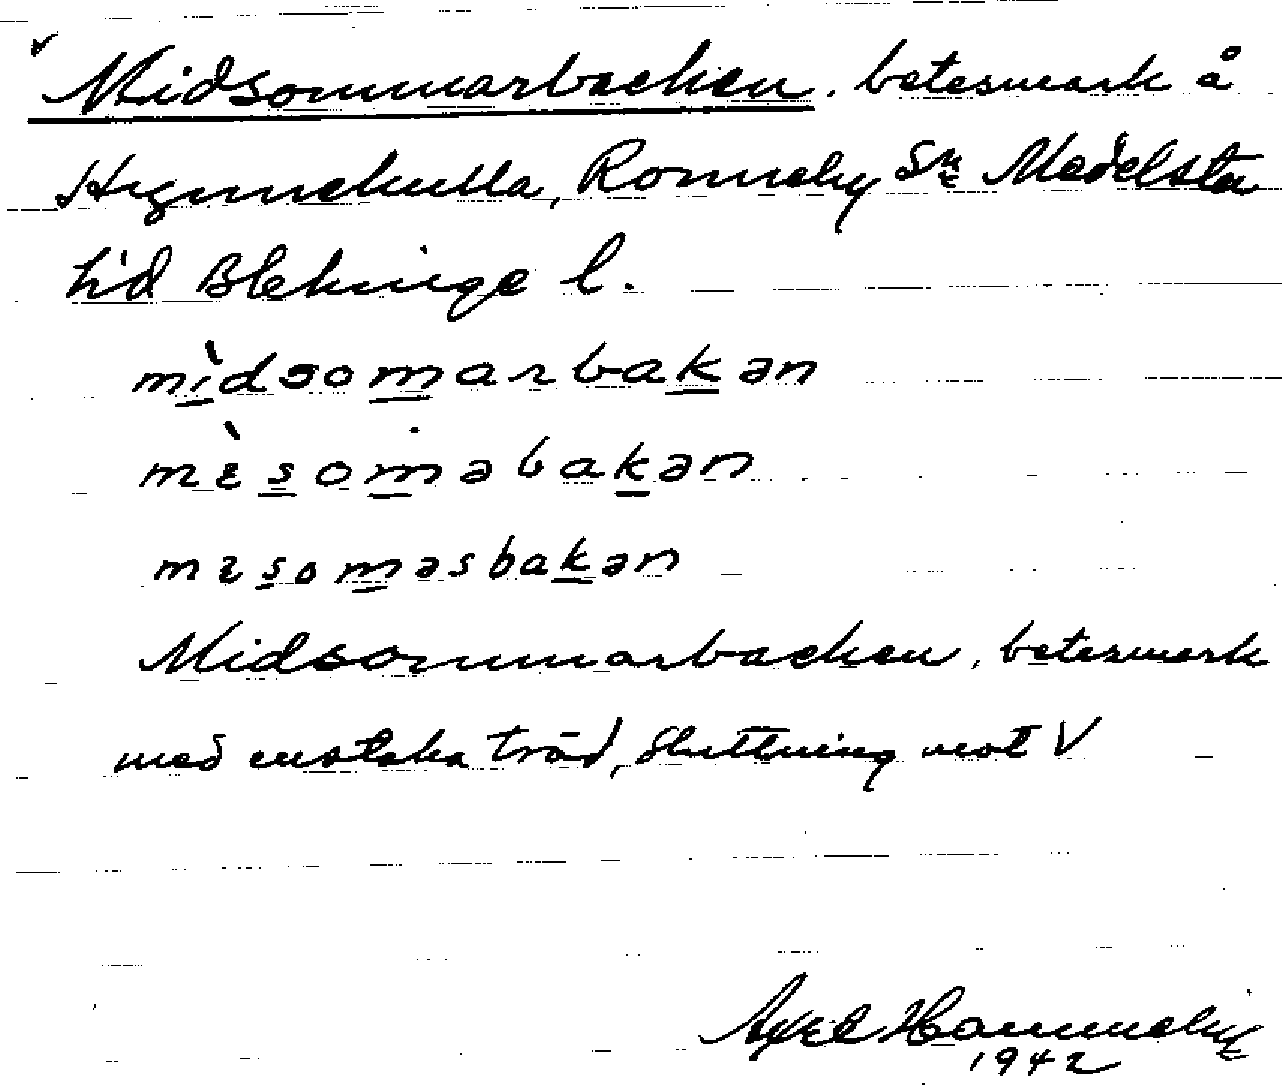 Midsommarbacken, betesmark å
Ronneby Sn Medelsta
hd Blekinge l.
mìdsomarbakən
mèsoməbakən
mɛsoməsbakən
Midsommarbacken, betesmark
med enstaka träd, sluttning mot V
Axel
1942